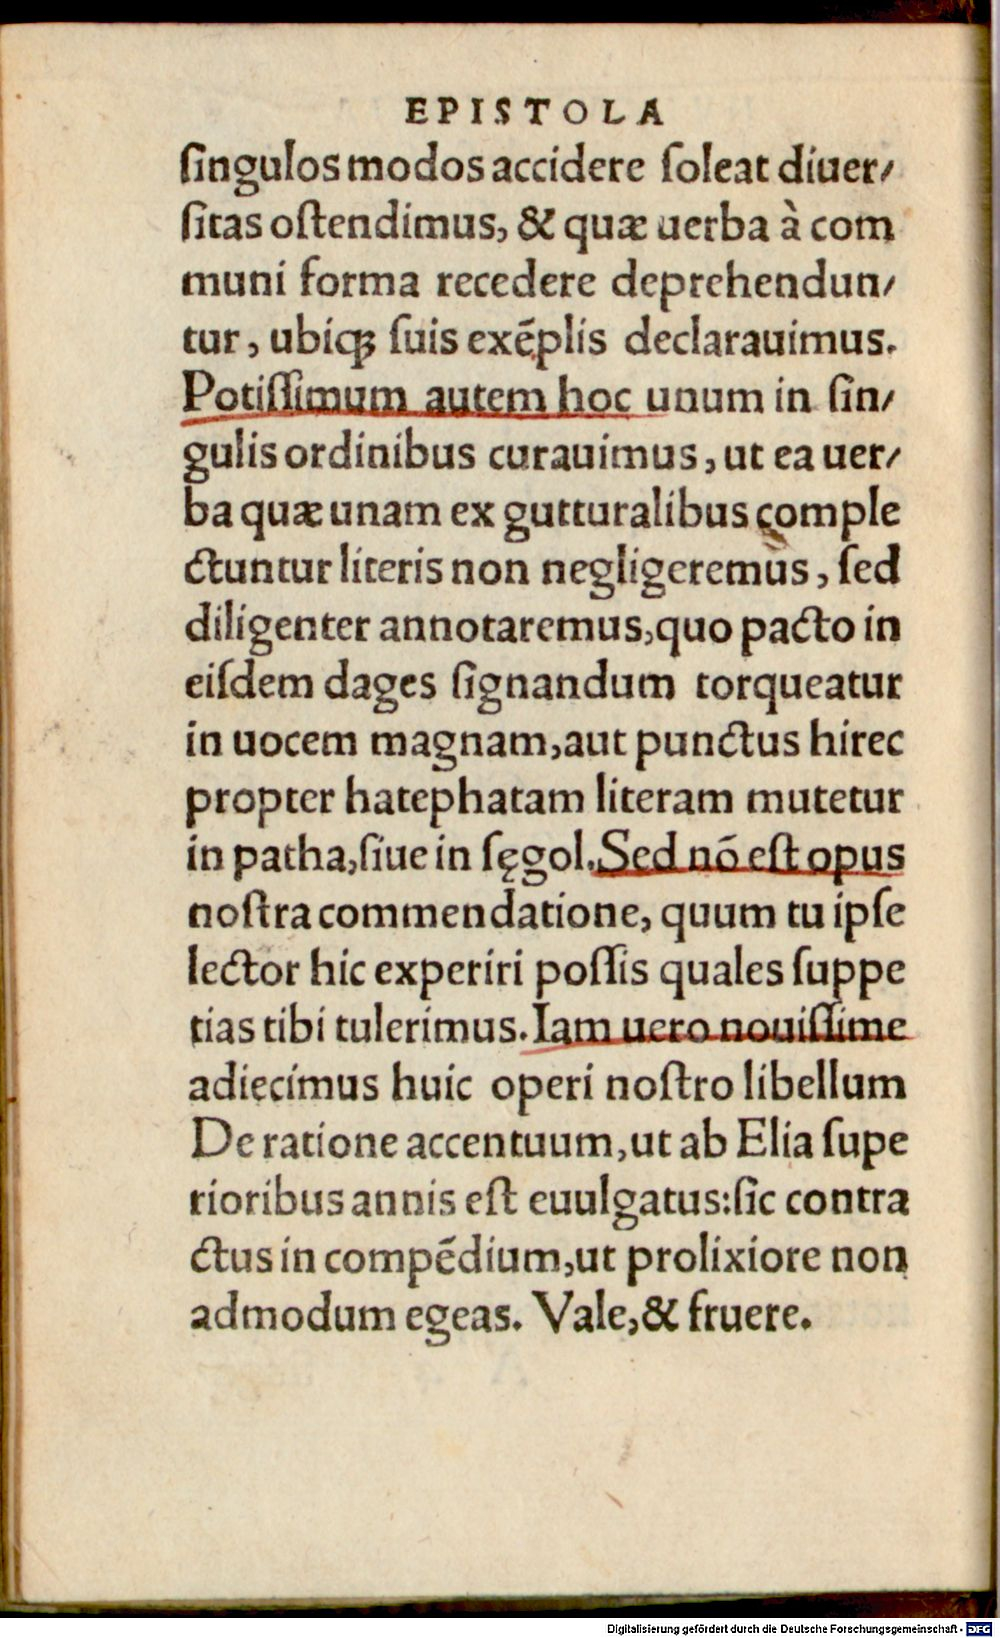 EPISTOLA
ſingulos modos accidere ſoleat diuer⸗
ſitas oſtendimus, & quæ uerba à com
muni forma recedere deprehendun⸗
tur, ubiqꝫ ſuis exẽplis declarauimus.
Potiſſimum autem hoc unum in ſin⸗
gulis ordinibus curauimus, ut ea uer⸗
ba quæ unam ex gutturalibus comple
ctuntur literis non negligeremus, ſed
diligenter annotaremus, quo pacto in
eiſdem dages ſignandum torqueatur
in uocem magnam, aut punctus hirec
propter hatephatam literam mutetur
in patha, ſiue in ſęgol. Sed nõ eſt opus
noſtra commendatione, quum tu ipſe
lector hic experiri poſſis quales ſuppe
tias tibi tulerimus. Iam uero nouiſſime
adiecimus huic operi noſtro libellum
De ratione accentuum, ut ab Elia ſupe
rioribus annis eſt euulgatus: ſic contra
ctus in compẽdium, ut prolixiore non
admodum egeas. Vale, & fruere.
Digitalisierung gefördert durch die Deutsche Forschungsgemeinschaft - DFG